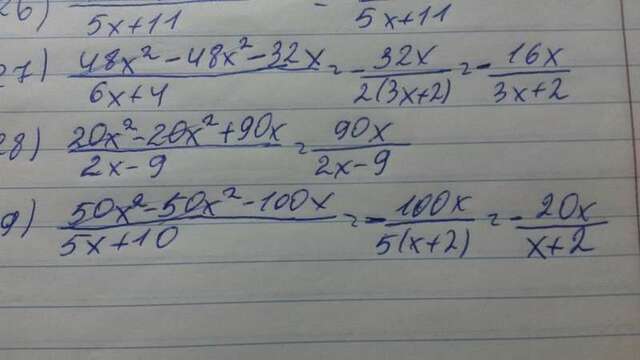 26) / 5x+11 - / 5x+11
27) (48x² - 48x² - 32x)/(6x+4) = - 32x/(2(3x+2)) = - 16x/(3x+2)
28) (20x² - 20x² + 90x)/(2x-9) = 90x/(2x-9)
9) (50x² - 50x² - 100x)/(5x+10) = - 100x/(5(x+2)) = - 20x/(x+2)